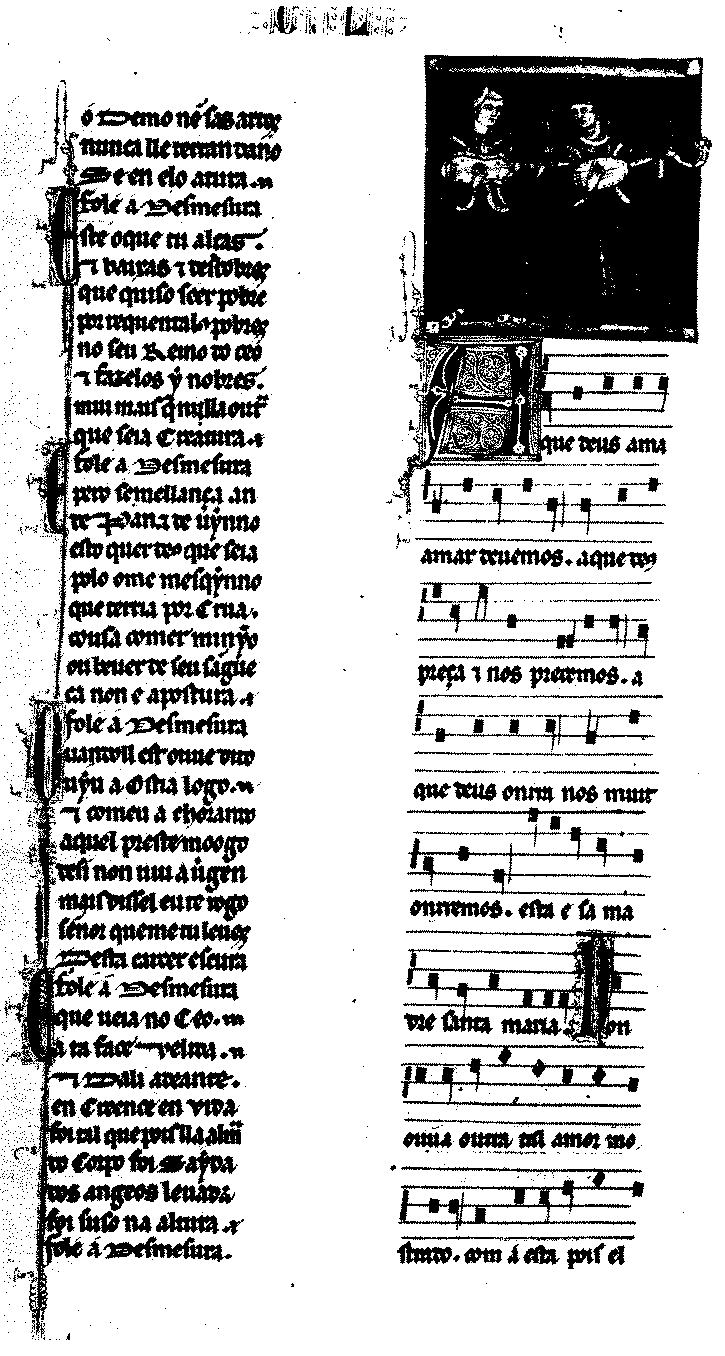 o Demo nē sas artes
nunca lle terran dano
Se en elo atura.
fole a Desmesura
Este o que tu alças.
⁊ baixas ⁊ descobres
que quiso seer pobre
por requentalos pobres
no seu Reino do ceo
⁊ fazelos ỹ nobres.
mui mais q̄ nulla out̄
que seia Creatura.
fole a Desmesura
pero semellança an
de Pan ⁊ de uỹno
esto quer deo que seia
polo ome mesqỹnno
que terria por Crua.
cousa comer minỹo
ou beuer de seu sāgue
ca non e apostura.
fole a Desmesura
Quand oll est ouue dito
uỹu a Ostia logo.
⁊ comeu a chorando
aquel preste moogo
desi non uiu a uirgen
mais diss el eu te rogo
sennor que me tu leues
Desta carcer escura
fole a Desmesura
que ueia no Ceo.
a ta face velida.
⁊ Dali adeante.
en Creence en vida
foi tal que pois lla alma
do Corpo foi Saỹda
dos angeos leuada
foi suso na altura.
fole a Desmesura.
A que deus ama
amar deuemos. a que deus
preça ⁊ nos preçemos. a
que deus onrra nos muit
onrremos. esta e sa ma
dre santa maria. Con
ouiia onrra tal amor mo
strado. com a esta pois el